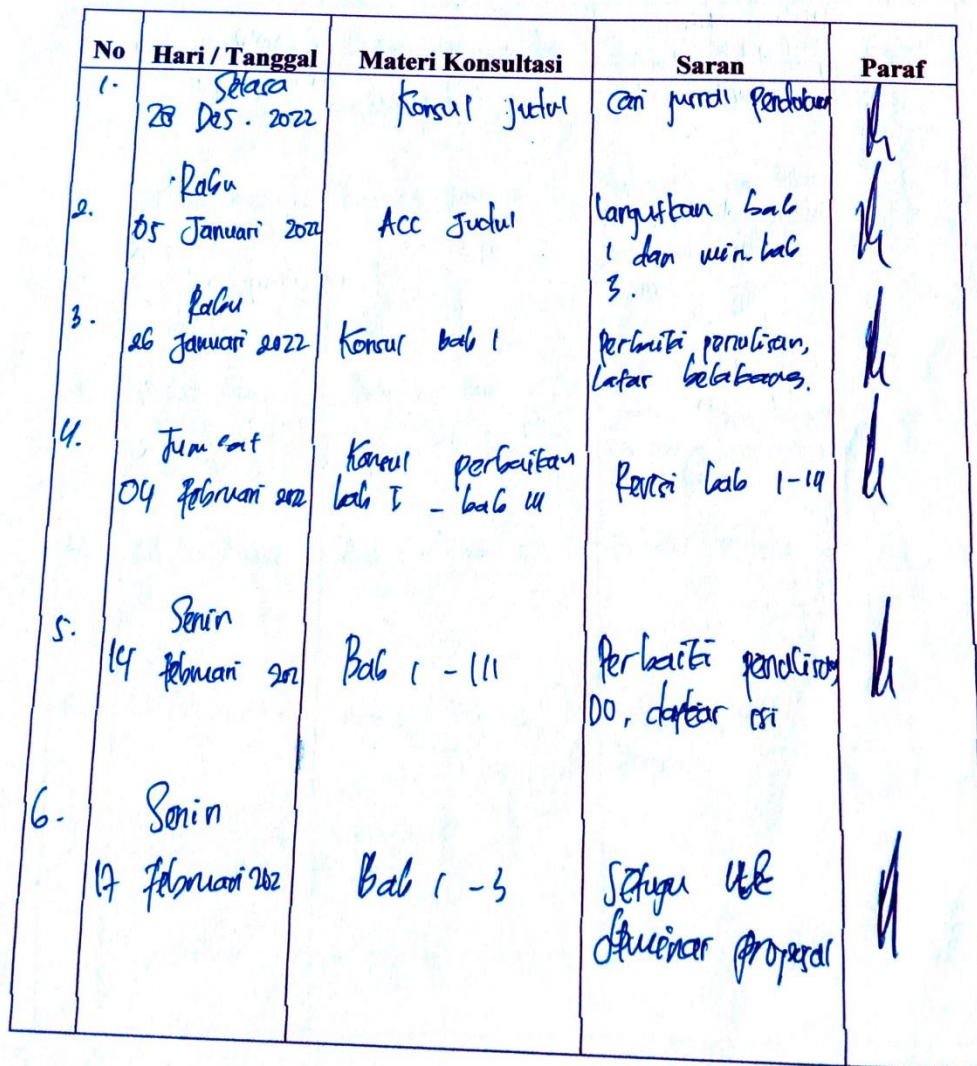 No Hari / Tanggal Materi Konsultasi Saran Paraf
1. Selasa
28 Des. 2022 Konsul judul Cari jurnal
2. Rabu
05 Januari 2022 ACC Judul Lanjutkan bab
1 dan min. bab
3.
3. Rabu
26 Januari 2022 Konsul bab 1 Perbaiki penulisan,
Latar belakang.
4. Jum'at
04 Februari 2022 Konsul perbaikan
bab I - bab III Revisi bab 1-III
5. Senin
14 Februari 202 Bab 1 - III Perbaiki penulisan,
DO, daftar isi
6. Senin
17 Februari 202 Bab 1 - 3 Setuju utk
seminar proposal